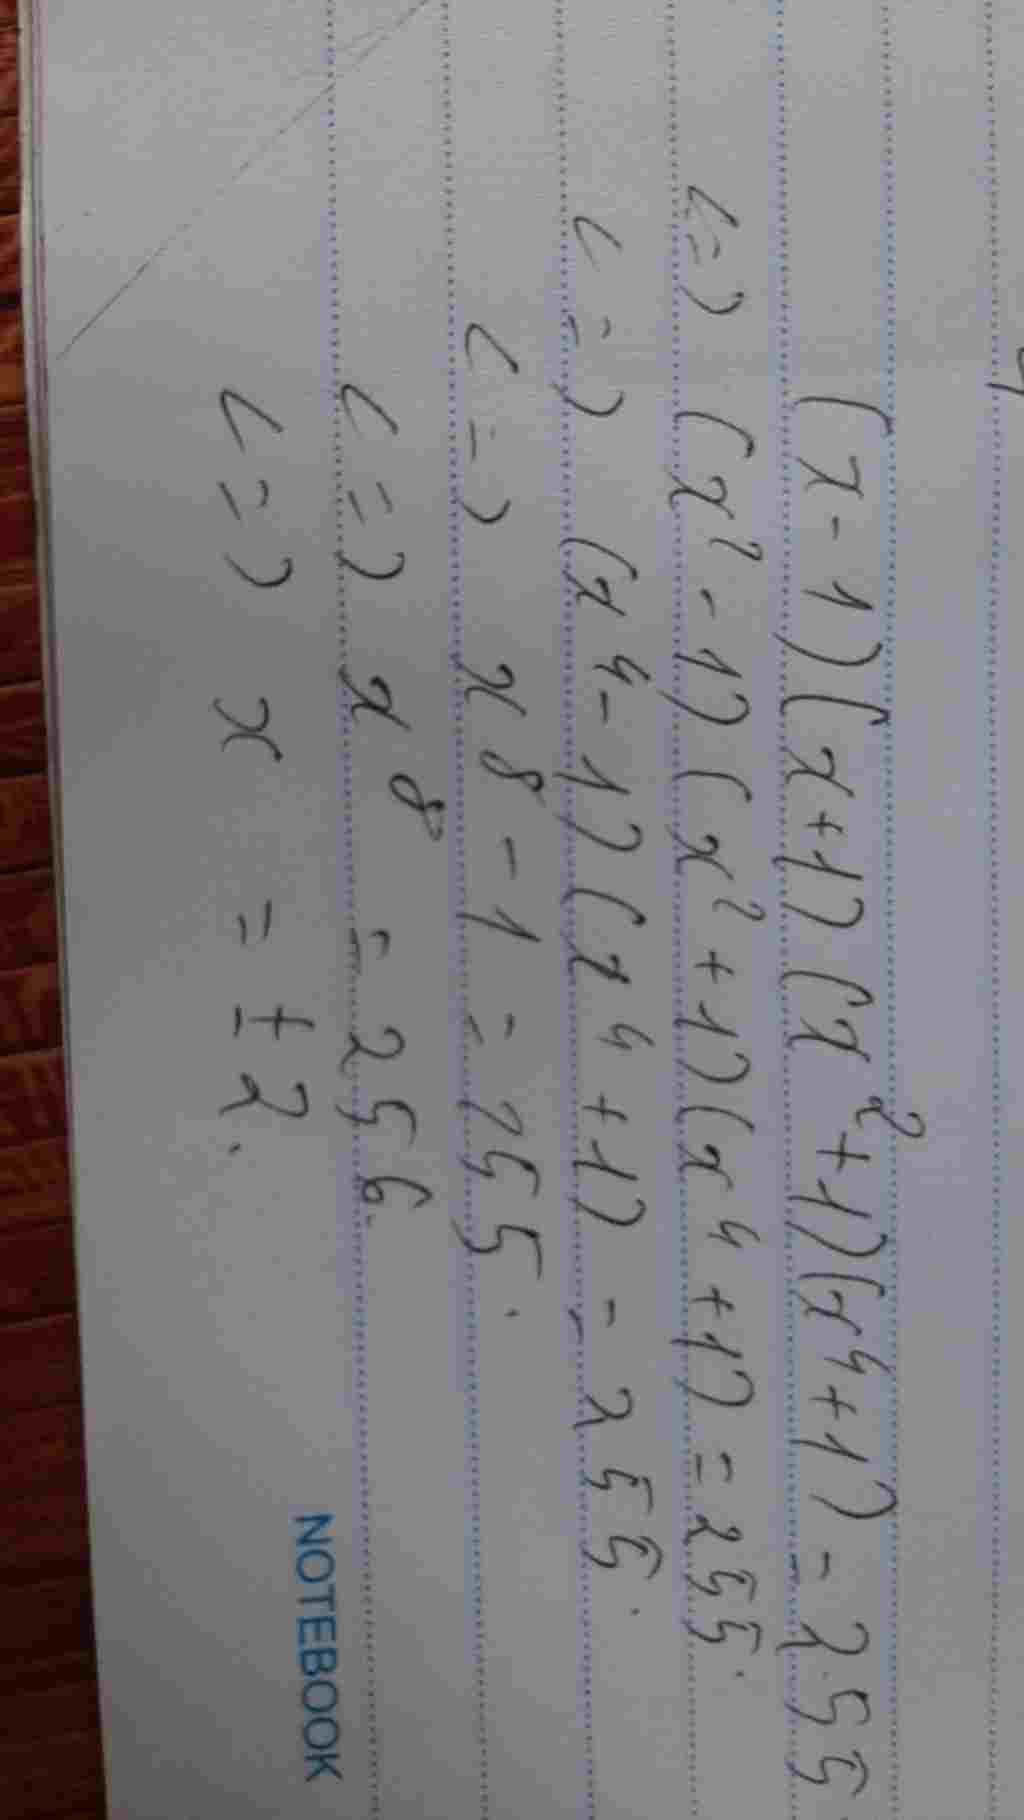 (x-1)(x+1)(x²+1)(x⁴+1) = 255
<=> (x²-1)(x²+1)(x⁴+1) = 255.
<=> (x⁴-1)(x⁴+1) = 255.
<=> x⁸-1 = 255.
<=> x⁸ = 256.
<=> x = ±2.
NOTEBOOK